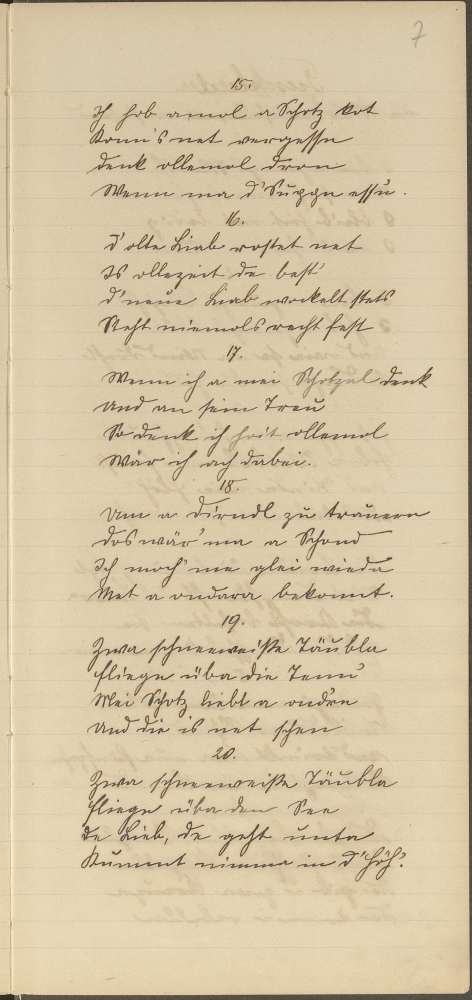 7
15.
Ich hob amol a Schotz kot
Konn's net vergessn
denk ollemol dron
Wenn ma d'Suppn essn.
16.
d'olte Liab rostet net
Is ollezeit de best'
d'neue Liab wockelt stets
Steht niemols recht fest
17.
Wenn ich a mei Schotzal denk
und an sein Treu
So denk ich heit ollemol
Wär ich ach dabei.
18.
Um a Dirndl zu trauern
dos wär' ma a Schond
Ich moch' me glei wieda
Met a ondara bekonnt.
19.
Zwa schneeweiße Täubla
fliegn üba die Tenn'
Mei Schotz liebt a ondre
und die is net schen
20.
Zwa schneeweiße Täubla
fliegn üba den See
de Lieb, de geht unta
Kummt nimma in d'Höh'.